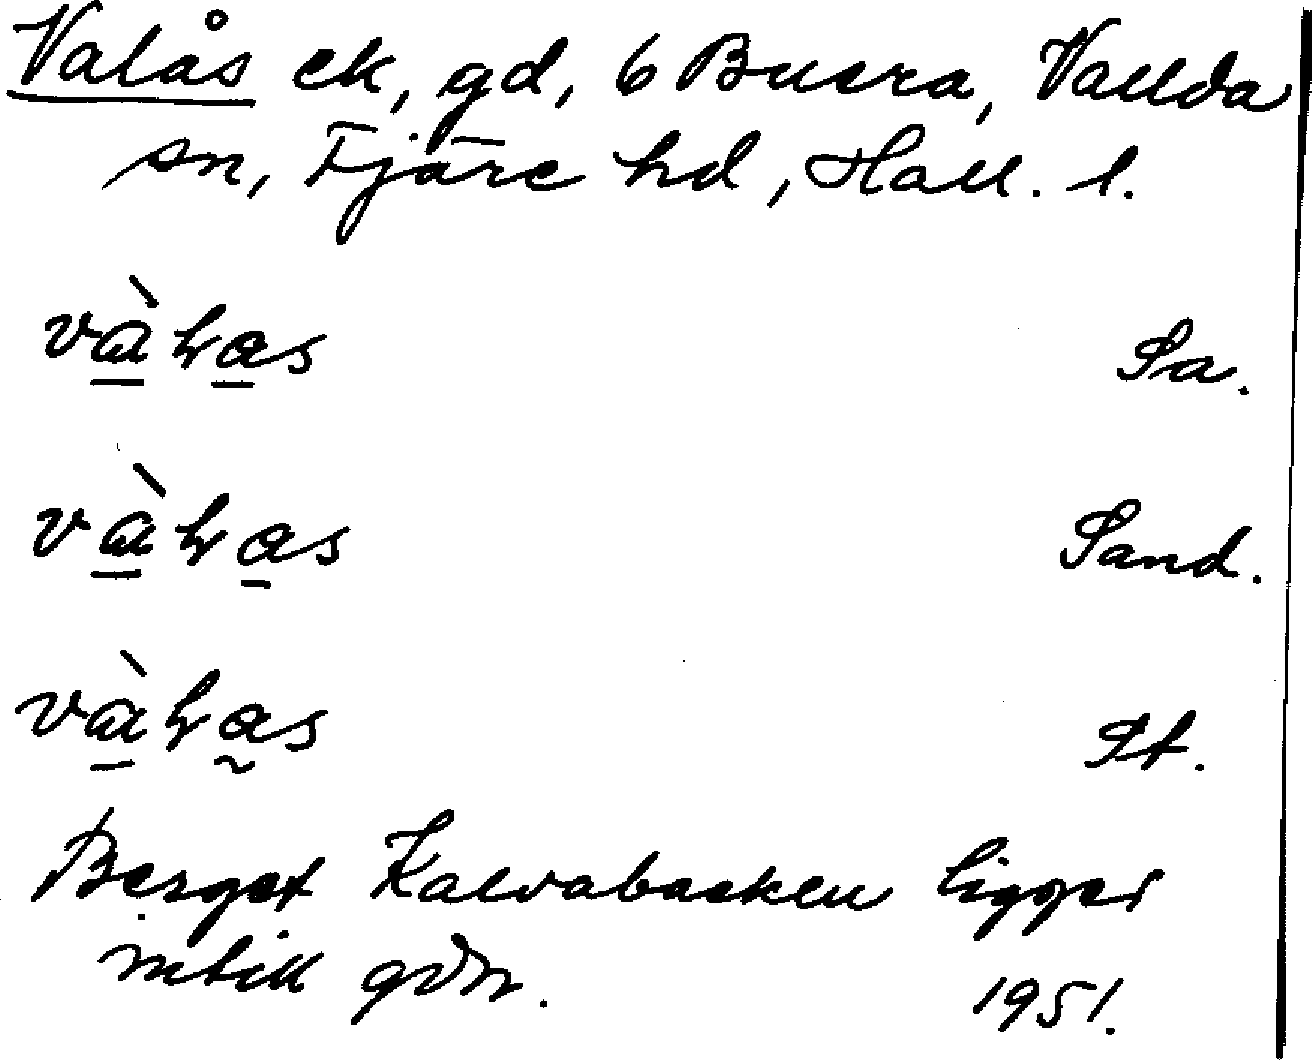 Valås ek, gd, 6 Buera, Vallda
sn, Fjäre hd, Hall. l.
vàɫas Sa.
vàɫas Sand.
vàɫas St.
Berget Kalvabacken ligger
intill gdn.
1951.